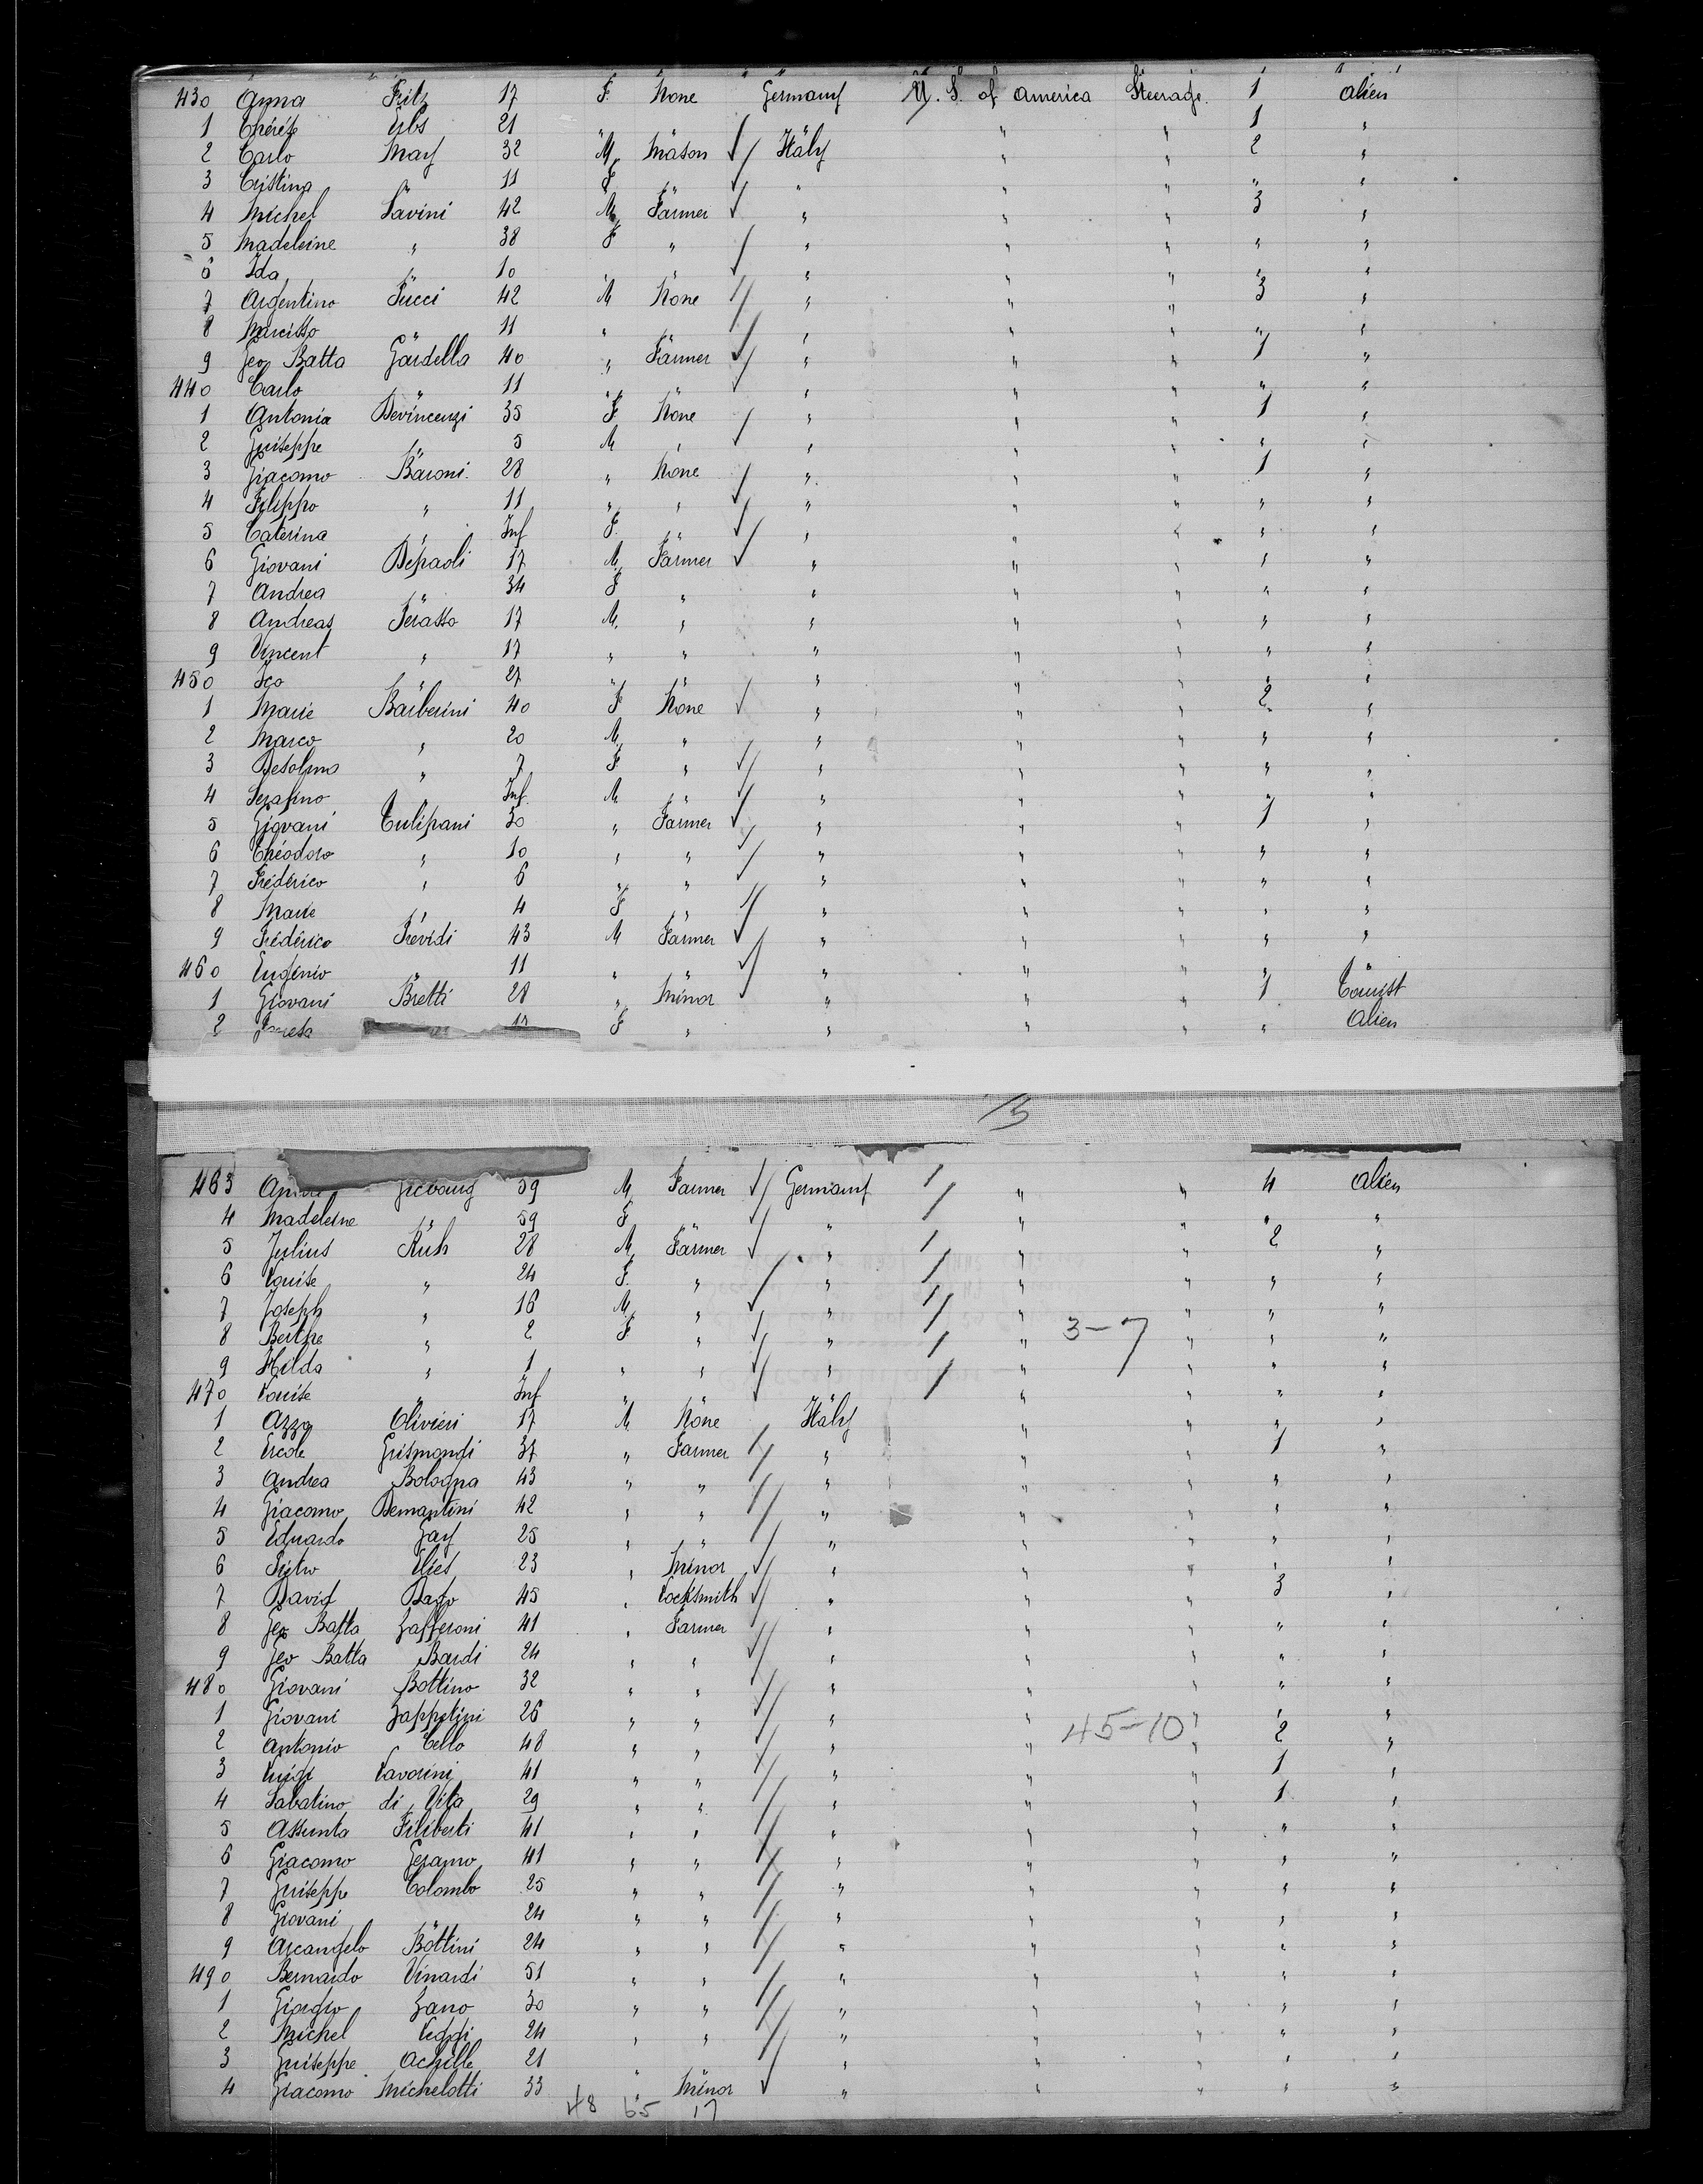 430 Anna Fritz 17 F. None Germany U. S. of America Steerage. 1 alien
1 Thérèse Erbs 21 " " " " " 1 "
2 Carlo Mary 32 M. Mason Italy " " 2 "
3 Cristina " 11 F " " " " " "
4 Michel Savini 42 M. Farmer " " " 3 "
5 Madeleine " 38 F " " " " " "
6 Ida " 10 " " " " " " "
7 Argentino Pucci 42 M None " " " 3 "
8 Narcisso " 11 " " " " " " "
9 Geo Batta Gardella 40 " Farmer " " " 1 "
440 Carlo " 11 " " " " " " "
1 Antonia Devincenzi 35 F. None " " " 1 "
2 Guiseppe " 5 M " " " " " "
3 Giacomo Baroni 28 " None " " " 1 "
4 Filippo " 11 " " " " " " "
5 Caterina " Inf F. " " " " " "
6 Giovani Depaoli 17 M. Farmer " " " " "
7 Andrea " 34 F " " " " " "
8 Andreas Perasso 17 M. " " " " " "
9 Vincent " 17 " " " " " " "
450 " 27 " " " " " " "
1 Marie Barberini 40 F None " " " 2 "
2 Marco " 20 M. " " " " " "
3 " 7 F. " " " " " "
4 Serafino " Inf. M " " " " " "
5 Giovani Tulipani 30 " Farmer " " " 1 "
6 Théodoro " 10 " " " " " " "
7 Frédérico " 6 " " " " " " "
8 Marie " 4 F " " " " " "
9 Frédérico Prévidi 43 M Farmer " " " " "
460 Eugénio " 11 " " " " " " "
1 Giovani Bretti 28 " Minor " " " 1 Tourist
2 F " " " " " Alien
13
463 59 M. Farmer Germany " " 4 Alien
4 Madeleine " 59 F " " " " " "
5 Julius Kuh 28 M. Farmer " " " 2 "
6 Louise " 24 F. " " " " " "
7 Joseph " 16 M. " " " " " "
8 Berthe " 2 F " " " 3-7 " " "
9 Hilda " 1 " " " " " " "
470 Louise " Inf " " " " " " "
1 Azzo Olivieri 17 M None Italy " " " "
2 Ercole Grismondi 37 " Farmer " " " 1 "
3 Andrea Bologna 43 " " " " " " "
4 Giacomo Demantini 42 " " " " " " "
5 Eduardo 25 " " " " " " "
6 Pietro 23 " Minor " " " " "
7 David 45 " Locksmith " " " 3 "
8 Geo Batta Zafferoni 41 " Farmer " " " " "
9 Geo Batta Bardi 24 " " " " " " "
480 Giovani Bottino 32 " " " " " " "
1 Giovani Zappetini 26 " " " " 45-10 " " "
2 Antonio Cello 48 " " " " " 2 "
3 Luigi Lavorini 41 " " " " " 1 "
4 Sabatino di Vita 29 " " " " " 1 "
5 Assunta Filiberti 41 " " " " " " "
6 Giacomo 41 " " " " " " "
7 Guiseppe Colombo 25 " " " " " " "
8 Giovani " 24 " " " " " " "
9 Arcangelo Bottini 24 " " " " " " "
490 Bernardo Vinardi 51 " " " " " " "
1 Giorgio Zano 30 " " " " " " "
2 Michel 24 " " " " " " "
3 Guiseppe Achille 21 " " " " " " "
4 Giacomo Michelotti 33 " Minor " " " " "
48 65 17